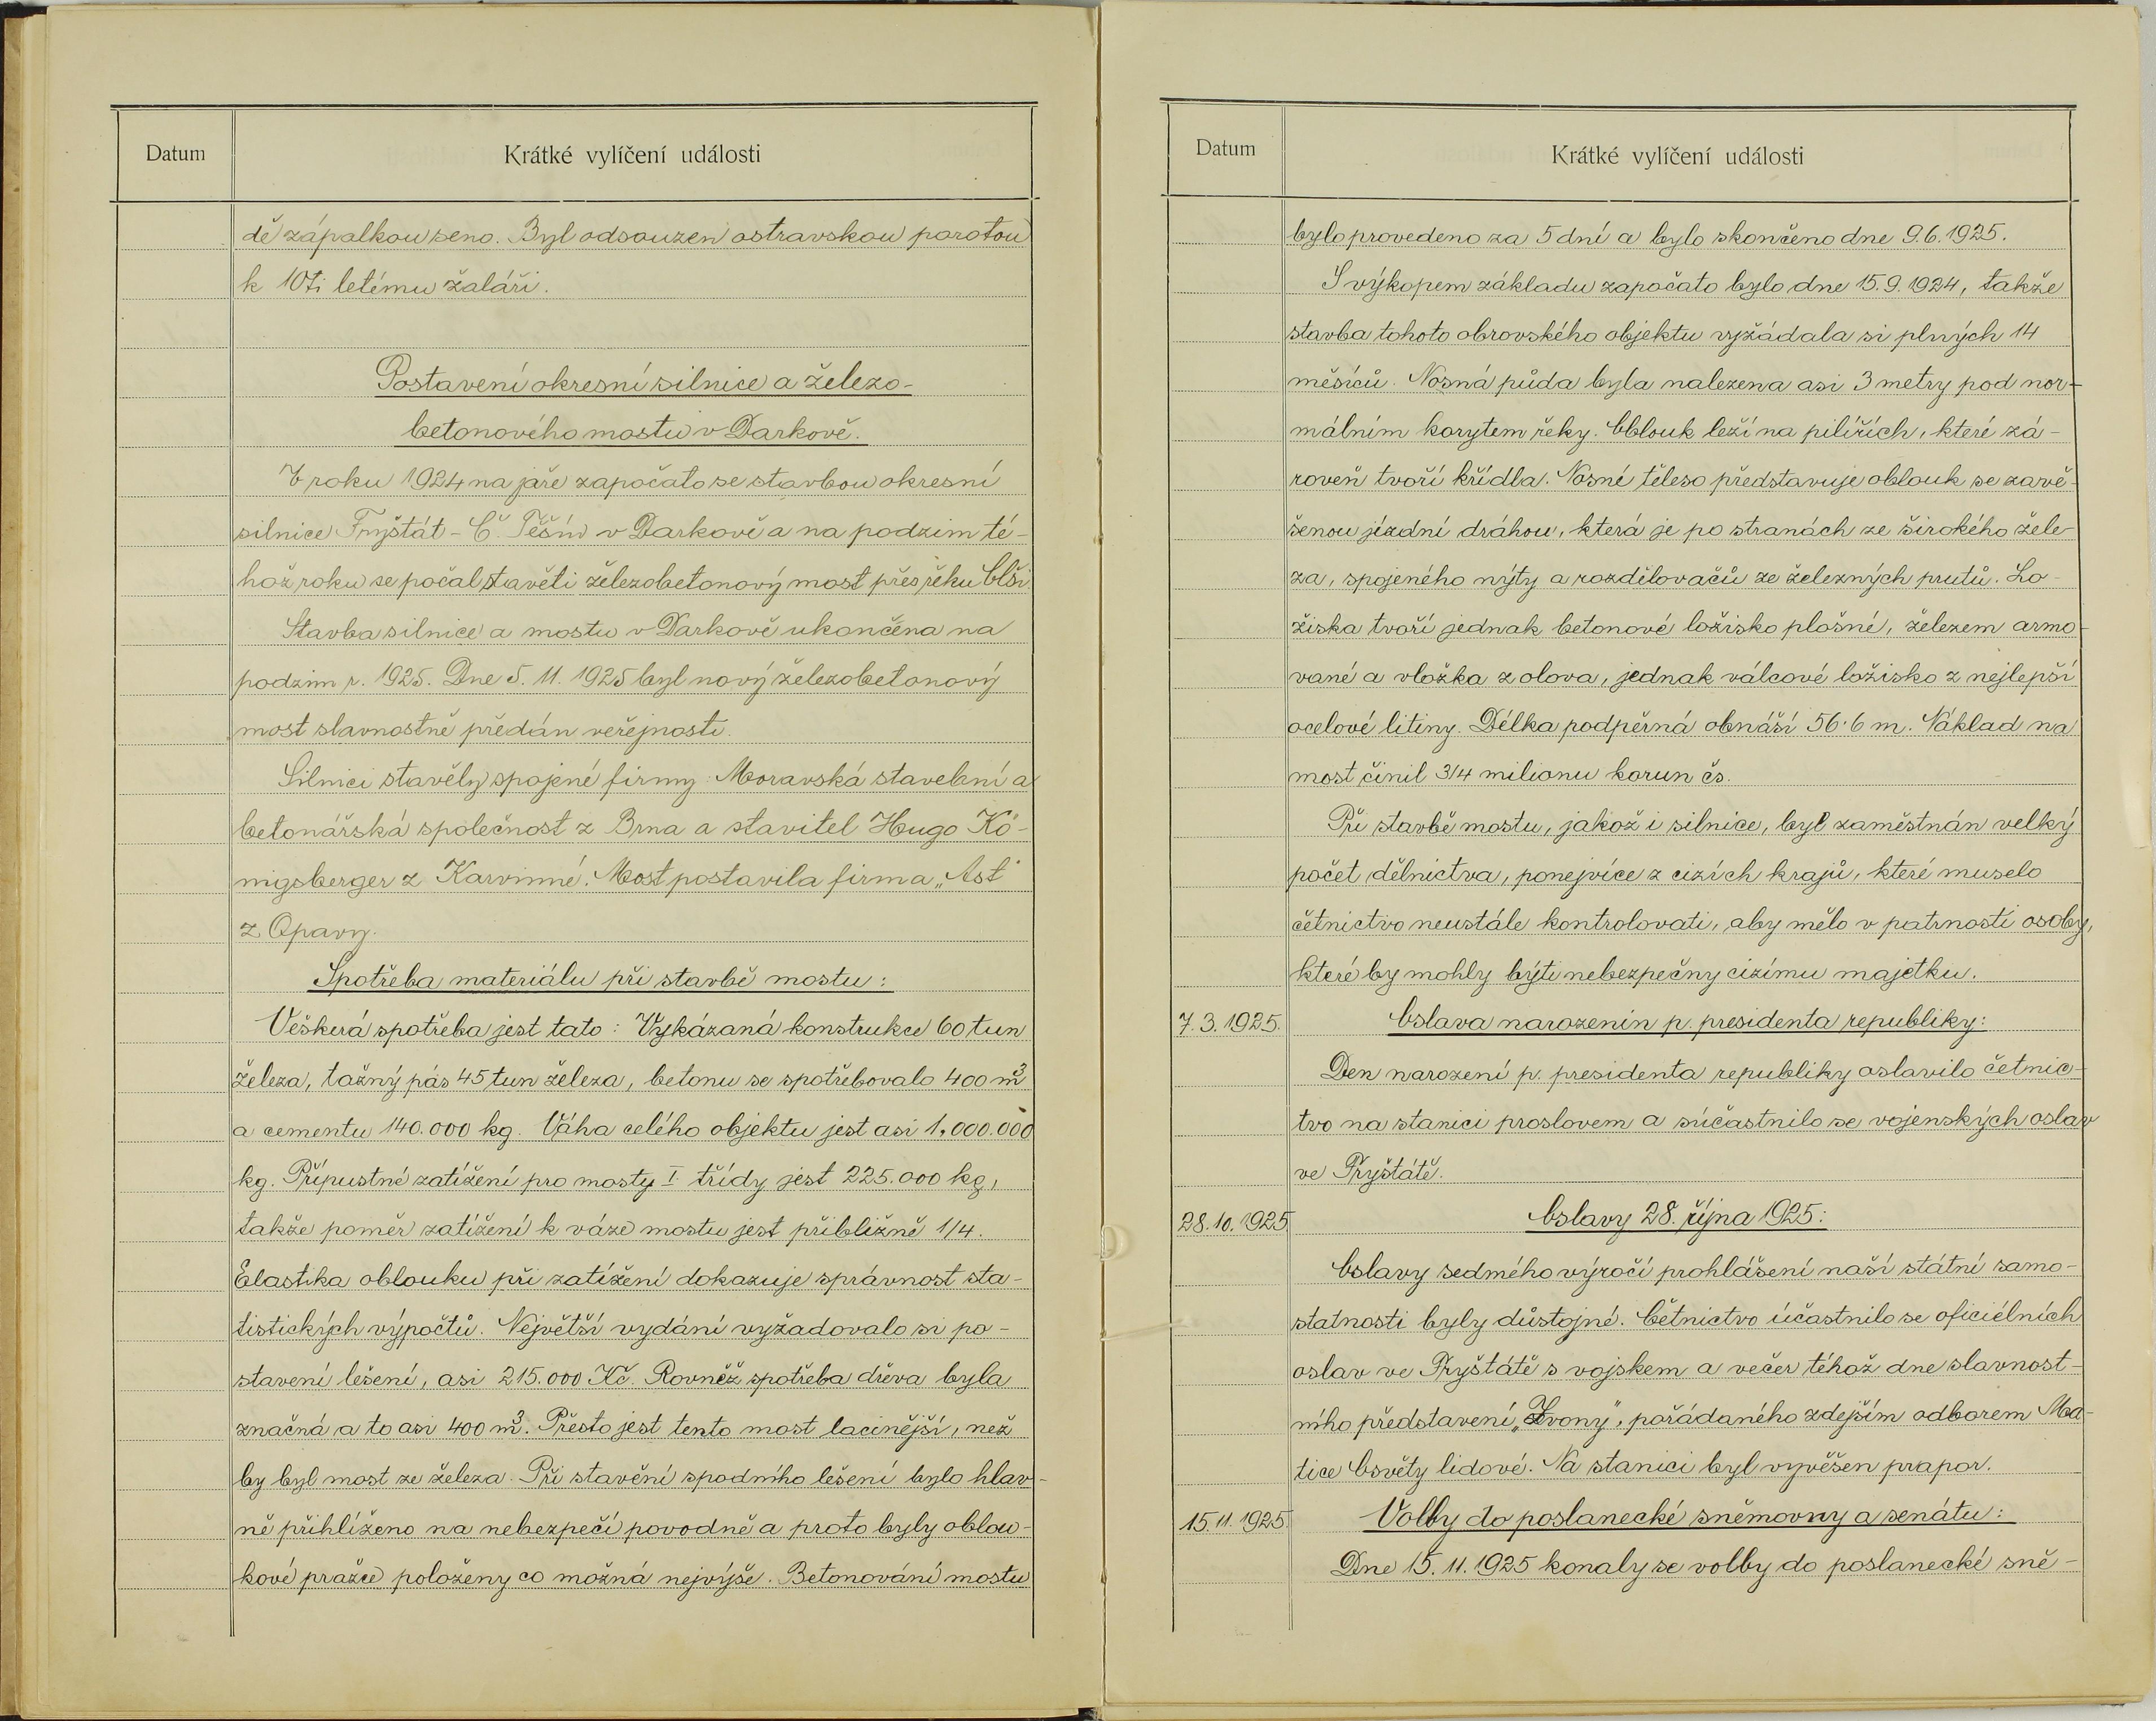 Datum
Krátké vylíčení události
dě zápalkou seno. Byl odsouzen ostravskou porotou
k 10ti letému žaláři.
Postavení okresní silnice a železo-
betonového mostu v Darkově.
V roku 1924 na jaře započato se stavbou okresní
silnice Fryštát - Č. Těšín v Darkově a na podzim té-
hož roku se počal stavěti železobetonový most přes řeku Olši.
Stavba silnice a mostu v Darkově ukončena na
podzim r. 1925. Dne 5. 11. 1925 byl nový železobetonový
most slavnostně předán veřejnosti.
Silnici stavěly spojené firmy: Moravská stavební a
betonářská společnost z Brna a stavitel Hugo Kö-
nigsberger z Karvinné. Most postavila firma „Ast"
z Opavy.
Spotřeba materiálu při stavbě mostu:
Veškerá spotřeba jest tato: Vykázaná konstrukce 60 tun
železa, tažný pás 45 tun železa, betonu se spotřebovalo 400 m³
a cementu 140.000 kg. Váha celého objektu jest asi 1,000.000
kg. Přípustné zatížení pro mosty I. třídy jest 225.000 kg,
takže poměr zatížení k váze mostu jest přibližně 1/4.
Elastika oblouku při zatížení dokazuje správnost sta-
tistických výpočtů. Největší vydání vyžadovalo si po-
stavení lešení, asi 215.000 Kč. Rovněž spotřeba dřeva byla
značná a to asi 400 m³. Přesto jest tento most lacinější, než
by byl most ze železa. Při stavění spodního lešení bylo hlav-
ně přihlíženo na nebezpečí povodně a proto byly oblou-
kové pražce položeny co možná nejvýše. Betonování mostu
Datum
Krátké vylíčení události
bylo provedeno za 5 dní a bylo skončeno dne 9.6.1925.
S výkopem základu započato bylo dne 15.9.1924, takže
stavba tohoto obrovského objektu vyžádala si plných 14
měsíců. Nosná půda byla nalezena asi 3 metry pod nor-
málním korytem řeky. Oblouk leží na pilířích, které zá-
roveň tvoří křídla. Nosné těleso představuje oblouk se zavě-
šenou jízdní dráhou, která je po stranách ze širokého žele-
za, spojeného nýty a rozdělovačů ze železných prutů. Lo-
žiska tvoří jednak betonové ložisko plošné, železem armo-
vané a vložka z olova, jednak válcové ložisko z nejlepší
ocelové litiny. Délka podpěrná obnáší 56·6 m. Náklad na
most činil 3/4 milionu korun čs.
Při stavbě mostu, jakož i silnice, byl zaměstnán velký
počet dělnictva, ponejvíce z cizích krajů, které muselo
četnictvo neustále kontrolovati, aby mělo v patrnosti osoby,
které by mohly býti nebezpečny cizímu majetku.
7.3.1925. Oslava narozenin p. presidenta republiky:
Den narození p. presidenta republiky oslavilo četnic-
tvo na stanici proslovem a súčastnilo se vojenských oslav
ve Fryštátě.
28.10.1925 Oslavy 28. října 1925:
Oslavy sedmého výročí prohlášení naší státní samo-
statnosti byly důstojné. Četnictvo účastnilo se oficiélních
oslav ve Fryštátě s vojskem a večer téhož dne slavnost-
ního představení „Zvony", pořádaného zdejším odborem Ma-
tice Osvěty lidové. Na stanici byl vyvěšen prapor.
15.11.1925 Volby do poslanecké sněmovny a senátu:
Dne 15.11.1925 konaly se volby do poslanecké sně-